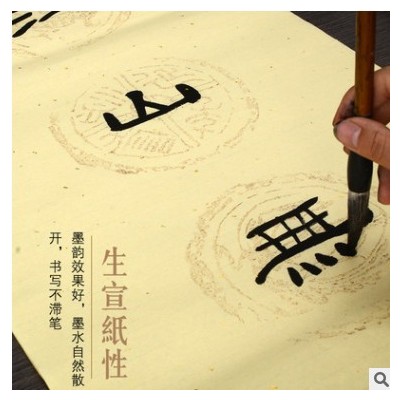 無
生宣紙性
墨韵效果好，墨水自然散
开，书写不滞笔